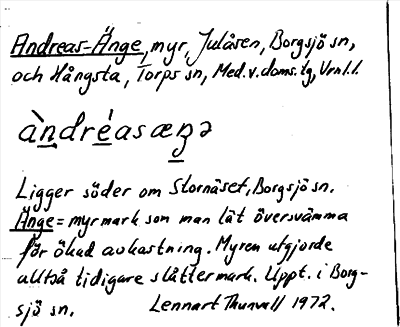 Andreas-Änge, myr, Julåsen, Borgsjö sn,
och Hångsta, Torps sn, Med. v. doms. tg, Vrnl. l.
àndréasæŋə
Ligger söder om Stornäset, Borgsjö sn.
Änge = myrmark som man lät översvämma
för ökad avkastning. Myren utgjorde
alltså tidigare slåttermark. Uppt. i Borg-
sjö sn. Lennart Thunvall 1972.